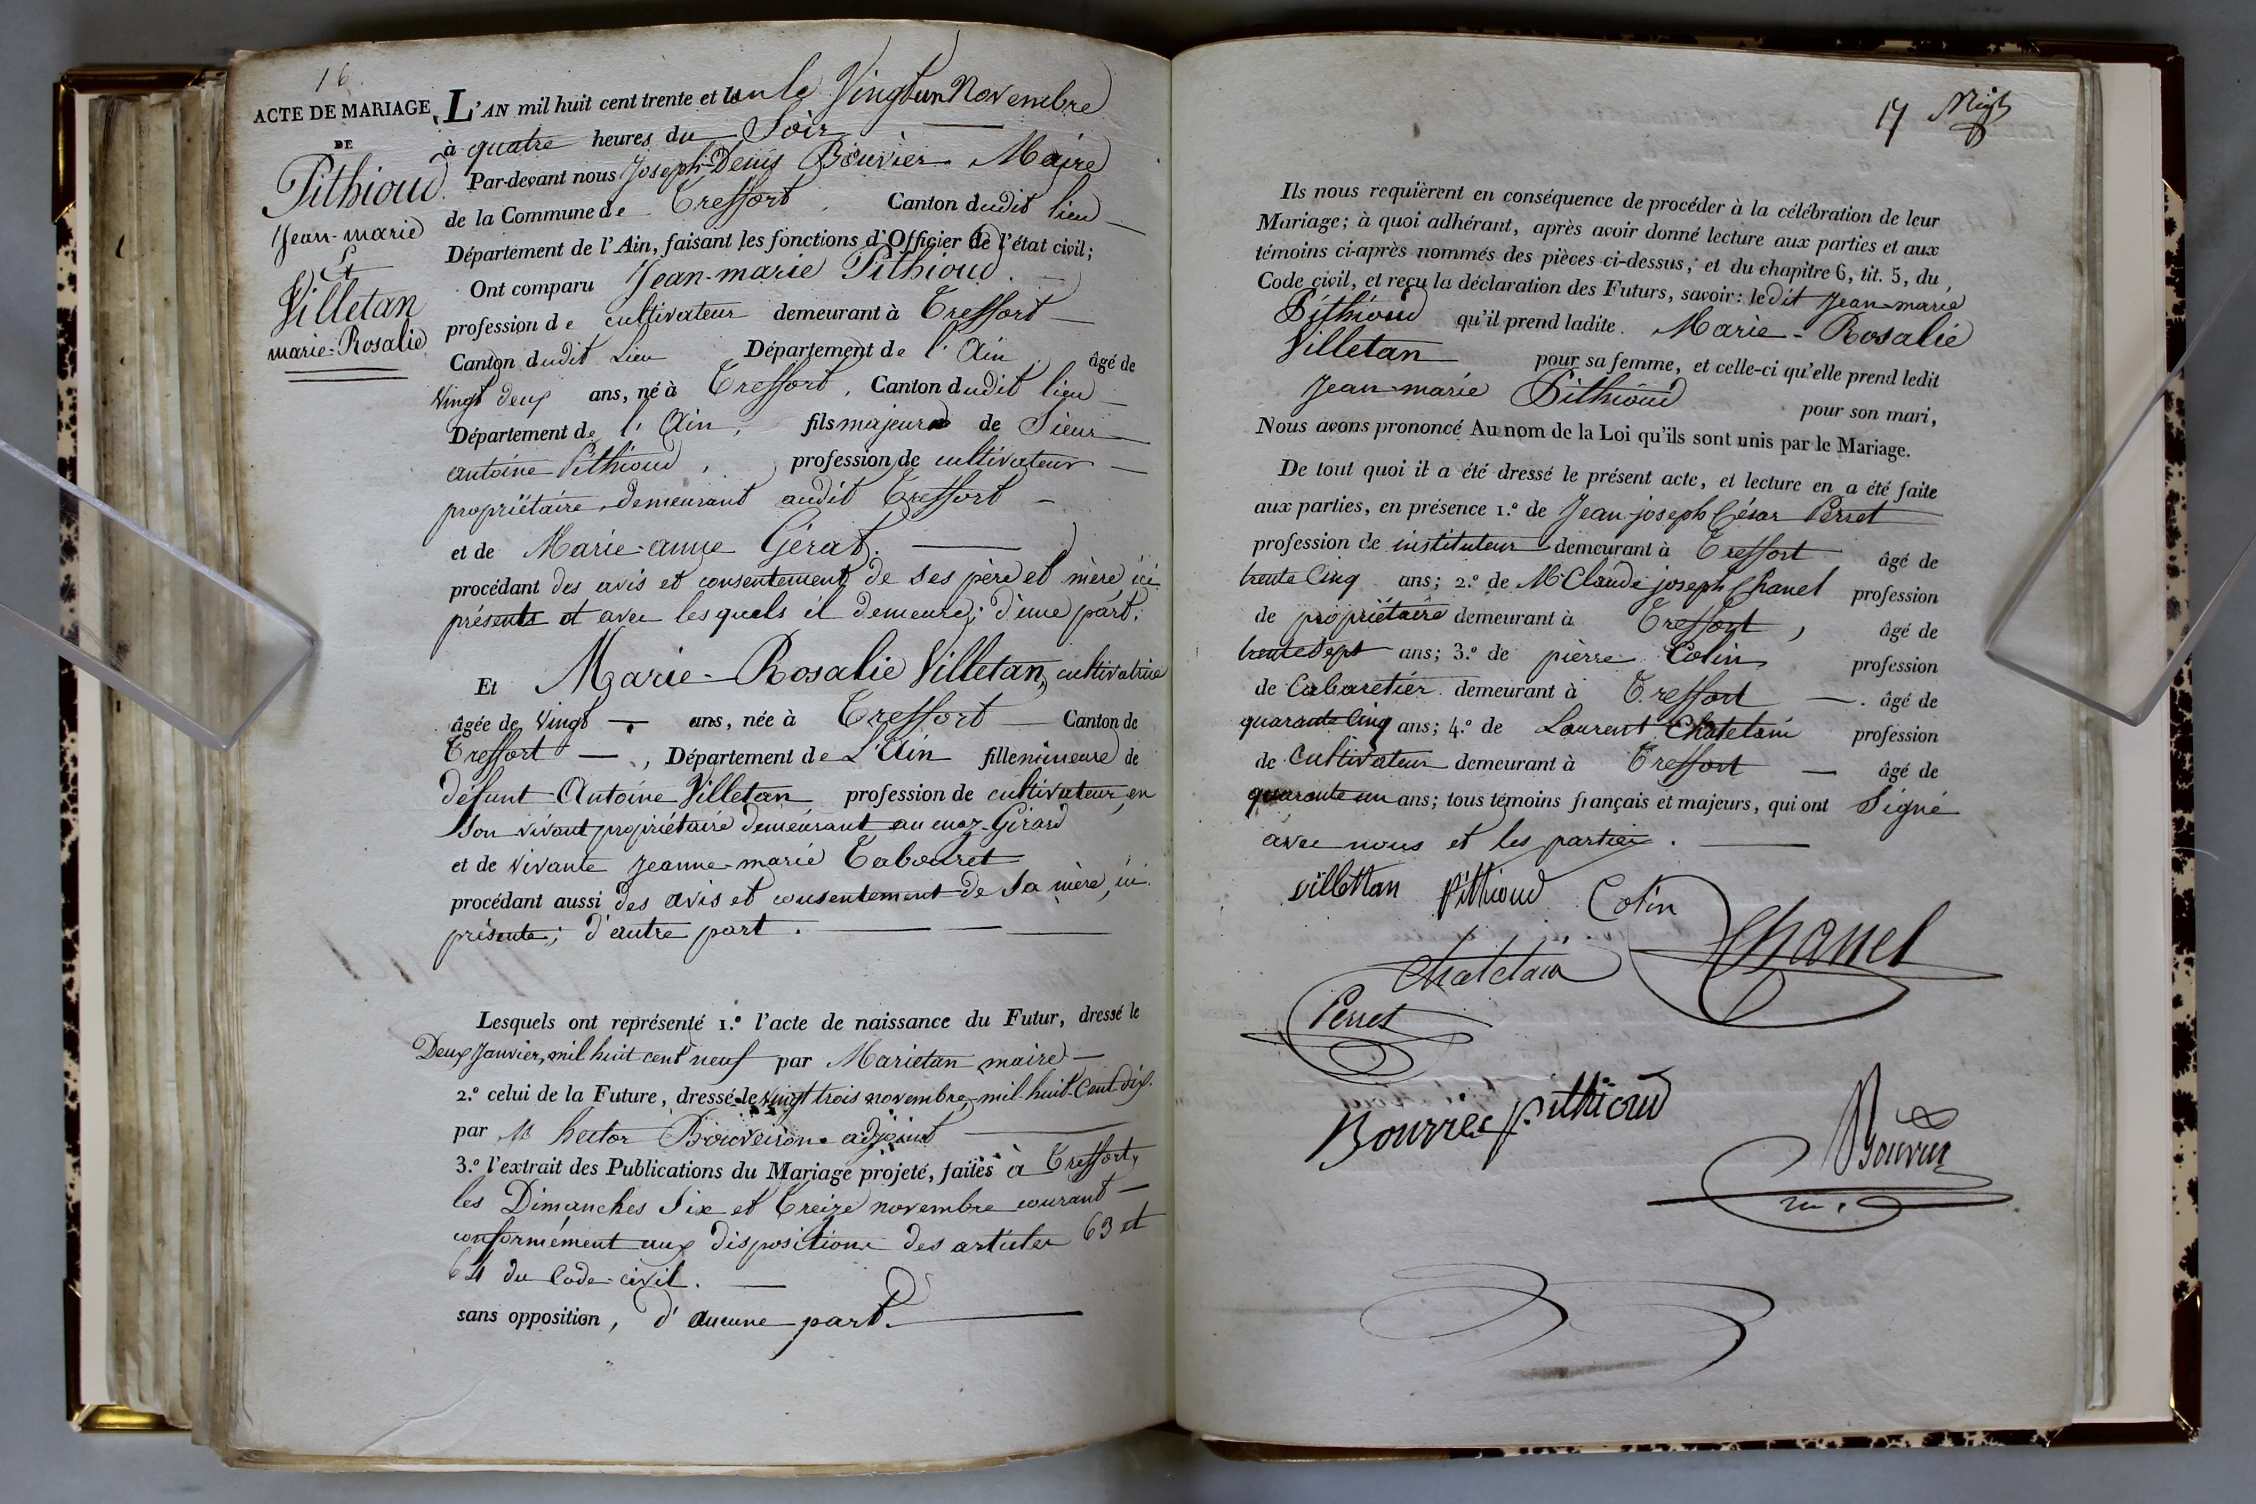 16
ACTE DE MARIAGE
DE
Pithioud
Jean-marie
Et
Villetan
marie-Rosalie
L'AN mil huit cent trente et un le Vingt un Novembre
à quatre heures du Soir
Par-devant nous Joseph-Denis Bouvier Maire
de la Commune de Treffort, Canton dudit lieu
Département de l'Ain, faisant les fonctions d'Officier de l'état civil;
Ont comparu Jean-marie Pithioud.
profession de cultivateur demeurant à Treffort
Canton dudit Lieu Département de l'Ain âgé de
Vingt deux ans, né à Treffort, Canton dudit lieu
Département de l'Ain, fils majeur de Sieur
antoine Pithioud, profession de cultivateur
propriétaire demeurant audit Treffort
et de Marie-anne Gérat.
procédant des avis et consentement de ses père et mère ici
présents et avec lesquels il demeure; d'une part.
Et Marie-Rosalie Villetan, cultivatrice
âgée de vingt ans, née à Treffort Canton de
Treffort, Département de L'Ain fille mineure de
défunt Antoine Villetan profession de cultivateur, en
son vivant propriétaire demeurant au muz-Girard
et de vivante Jeanne-marie Tabouret
procédant aussi des avis et consentement de sa mère, ici
présente; d'autre part.
Lesquels ont représenté 1.º l'acte de naissance du Futur, dressé le
Deux Janvier, mil huit cent neuf par Marietan maire
2.º celui de la Future, dressé le vingt trois novembre, mil-huit-cent-dix.
par M hector adjoint
3.º l'extrait des Publications du Mariage projeté, faites à Treffort,
les Dimanches Six et Treize novembre courant
conformément aux dispositions des articles 63 et
64 du Code-civil.
sans opposition, d'aucune part.
17
Ils nous requièrent en conséquence de procéder à la célébration de leur
Mariage; à quoi adhérant, après avoir donné lecture aux parties et aux
témoins ci-après nommés des pièces ci-dessus, et du chapitre 6, tit. 5, du
Code civil, et reçu la déclaration des Futurs, savoir: ledit Jean-marie
Pithioud qu'il prend ladite Marie-Rosalie
Villetan pour sa femme, et celle-ci qu'elle prend ledit
Jean-marie Pithioud pour son mari,
Nous avons prononcé Au nom de la Loi qu'ils sont unis par le Mariage.
De tout quoi il a été dressé le présent acte, et lecture en a été faite
aux parties, en présence 1.º de Jean-joseph César Perret
profession de instituteur demeurant à Treffort âgé de
trente Cinq ans; 2.º de Mr Claude joseph Chanel profession
de propriétaire demeurant à Treffort, âgé de
trente Sept ans; 3.º de pierre Colin profession
de Cabaretier demeurant à Treffort. âgé de
quarante Cinq ans; 4.º de Laurent Chatelain profession
de Cultivateur demeurant à Treffort âgé de
quarante un ans; tous témoins français et majeurs, qui ont Signé
avec nous et les parties.
villettan pithioud Colin
Chanel
Chatelain
Perret
Bouvier pithioud
Bouvier
m.